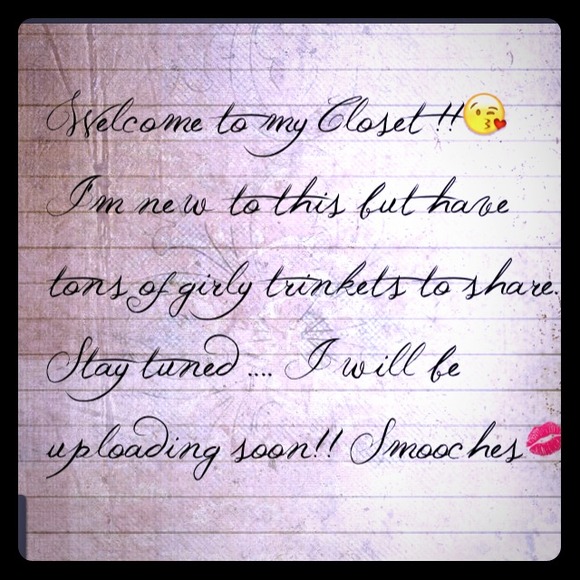 Welcome to my Closet !!😘
I'm new to this but have
tons of girly trinkets to share.
Stay tuned .... I will be
uploading soon!! Smooches💋